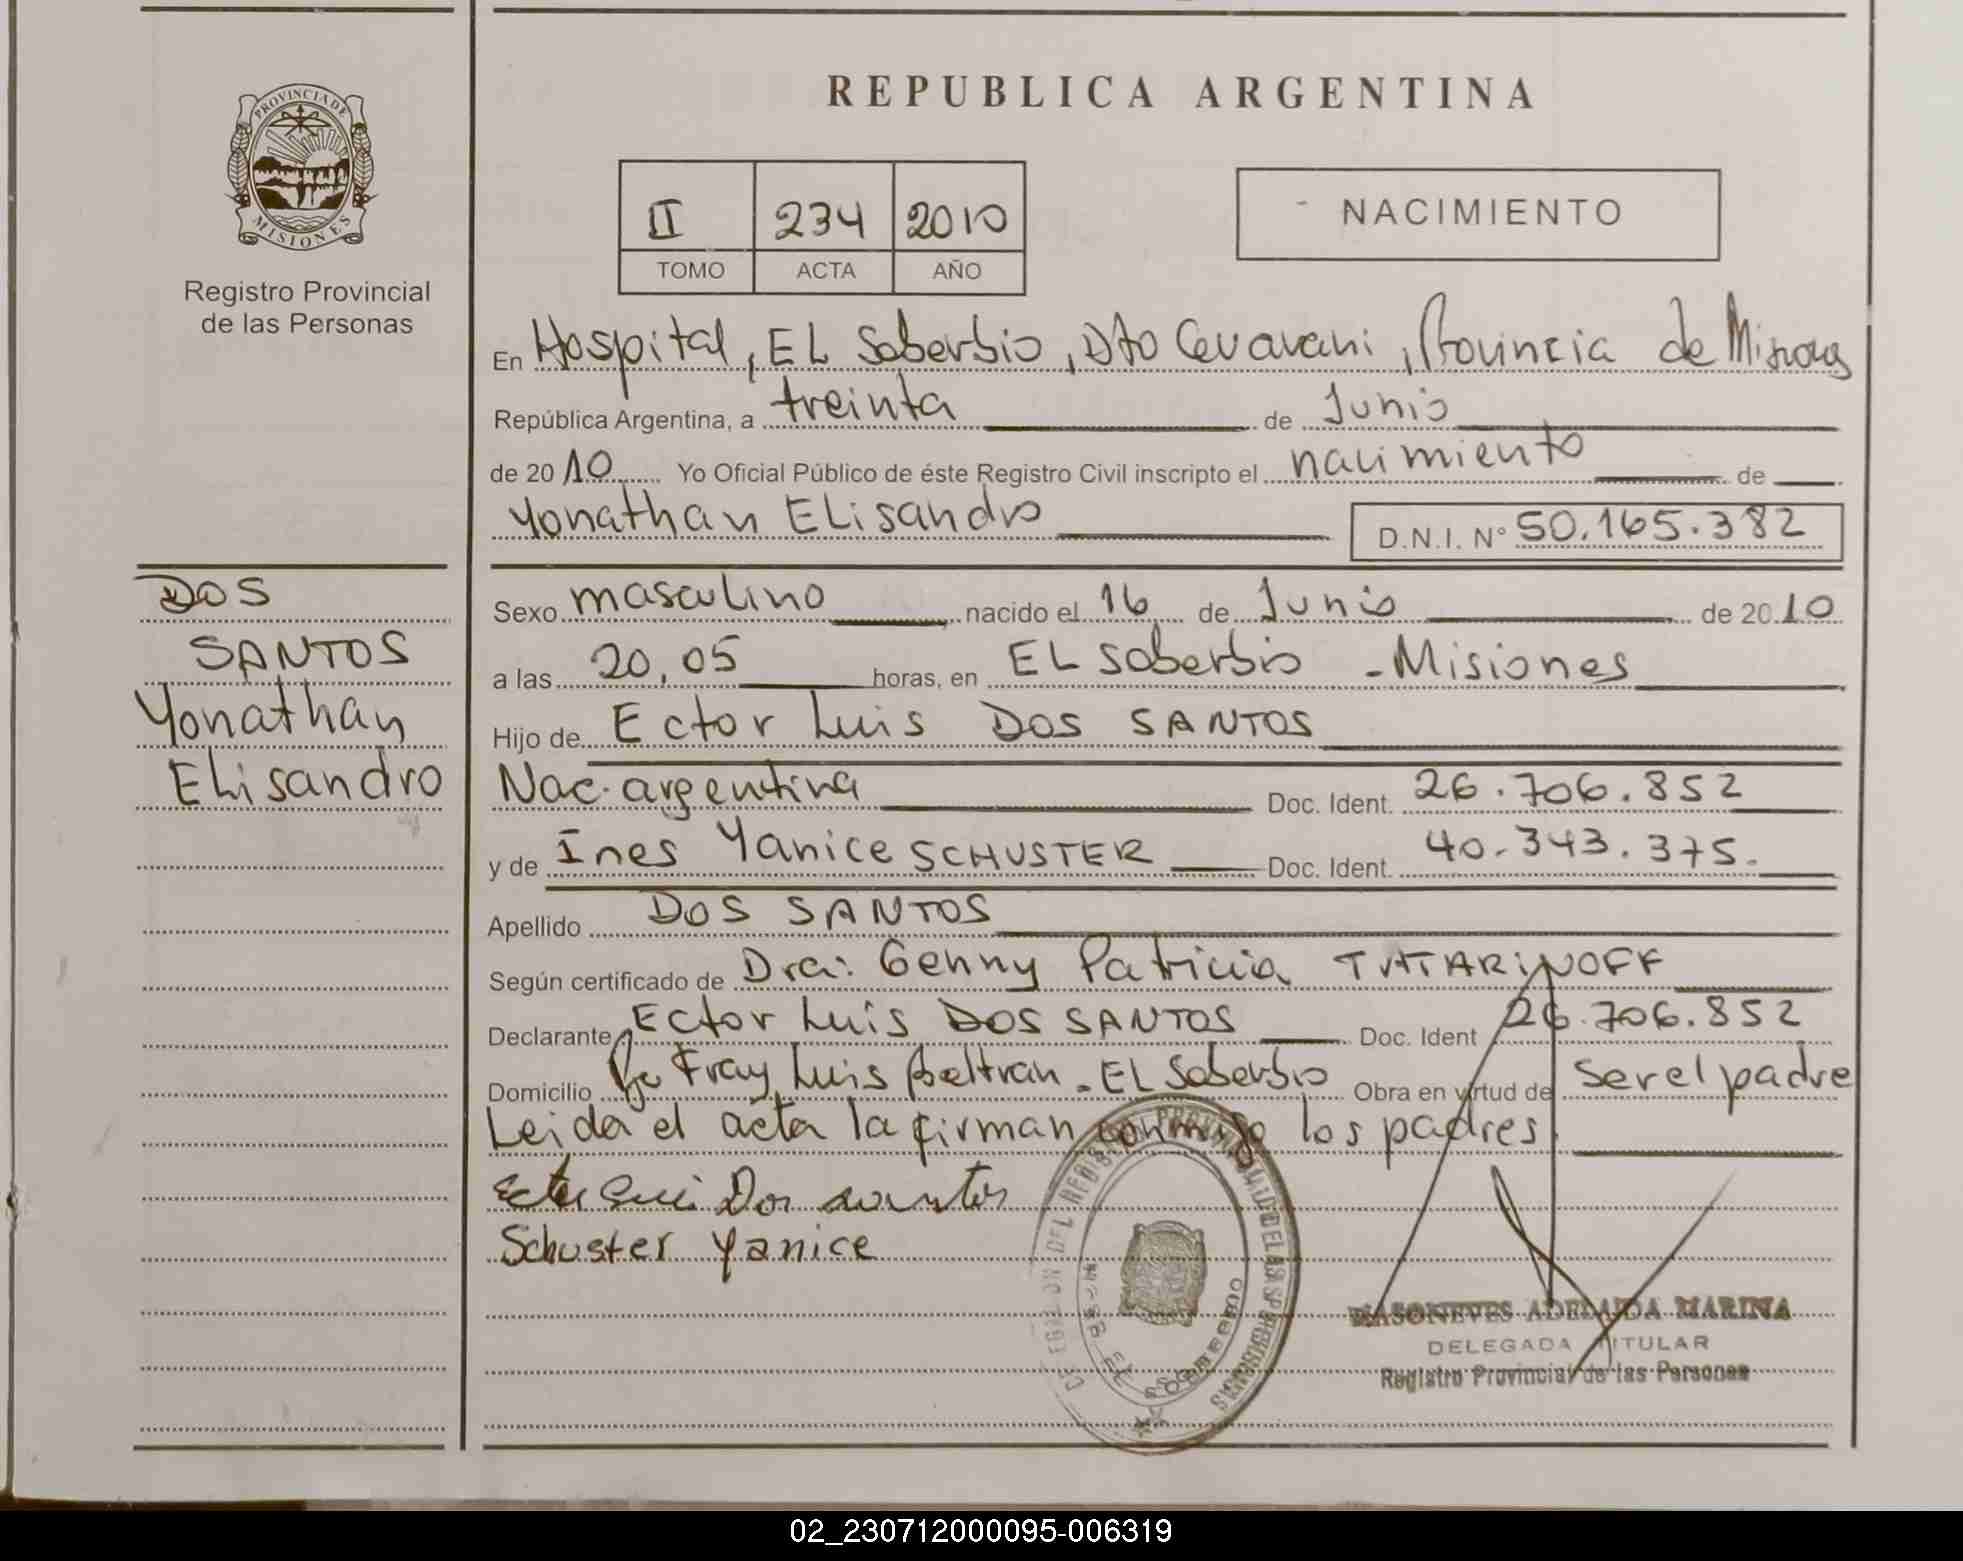 REPUBLICA ARGENTINA
PROVINCIA DE
MISIONES
Registro Provincial
de las Personas
II 234 2010
TOMO ACTA AÑO
NACIMIENTO
En Hospital, EL Soberbio, Dto Guarani, Provincia de Misiones
República Argentina, a treinta de Junio
de 2010 Yo Oficial Público de éste Registro Civil inscripto el nacimiento de
Yonathan ELisandro D.N.I. Nº 50.165.382
DOS
SANTOS
Yonathan
ELisandro
Sexo masculino nacido el 16 de Junio de 2010
a las 20,05 horas, en EL Soberbio - Misiones
Hijo de Ector Luis DOS SANTOS
Nac. argentina Doc. Ident. 26.706.852
y de Ines Yanice SCHUSTER Doc. Ident. 40.343.375.
Apellido DOS SANTOS
Según certificado de Dra: Genny Patricia TATARINOFF
Declarante Ector Luis DOS SANTOS Doc. Ident 26.706.852
Domicilio Fray Luis Beltran - EL Soberbio Obra en virtud de ser el padre
Leida el acta la firman conmigo los padres.
Dos santos
Schuster Yanice
ADELAIDA MARINA
DELEGADA TITULAR
Registro Provincial de las Personas
02_230712000095-006319